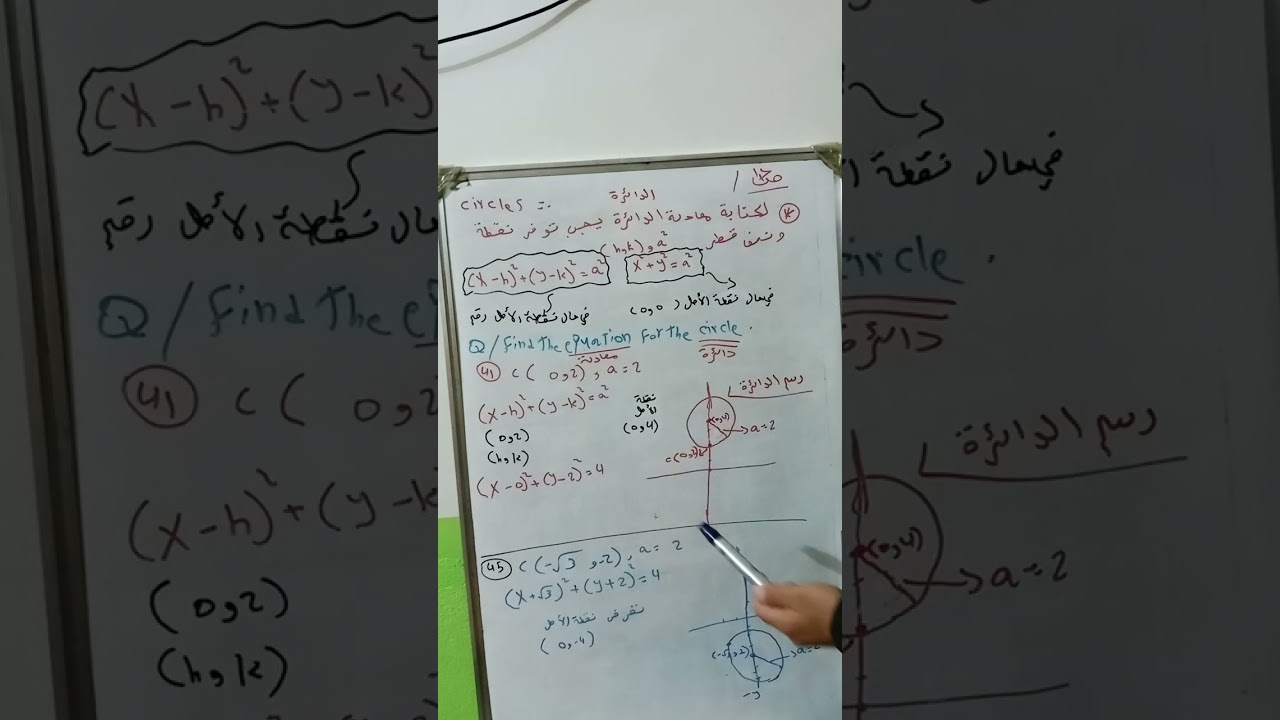 Circles الدائرة
* لكتابة معادلة الدائرة يجب توفر نقطة
ونصف قطر (h,k), a²
(x-h)²+(y-k)²=a² x²+y²=a²
في حال نقطة الأصل رقم في حال نقطة الأصل (0,0)
Q/ Find the equation for the circle.
معادلة دائرة
41 C(0,2), a=2
رسم الدائرة
(x-h)²+(y-k)²=a²
نقطة
الأصل
(0,4)
(0,2)
(h,k)
(0,4) a=2
(x-0)²+(y-2)²=4
45 C(-√3,-2), a=2
(x+√3)²+(y+2)²=4
نفرض نقطة الأصل
(0,-4)
a=2
-y